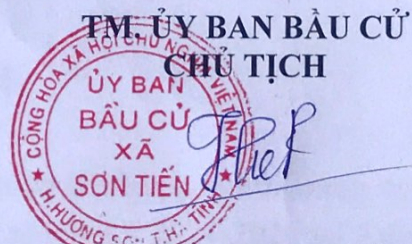 TM. ỦY BAN BẦU CỬ
CHỦ TỊCH
CỘNG HÒA XÃ HỘI CHỦ NGHĨA VIỆT NAM
ỦY BAN
BẦU CỬ
XÃ
SƠN TIẾN
H.HƯƠNG SƠN T.HÀ TĨNH